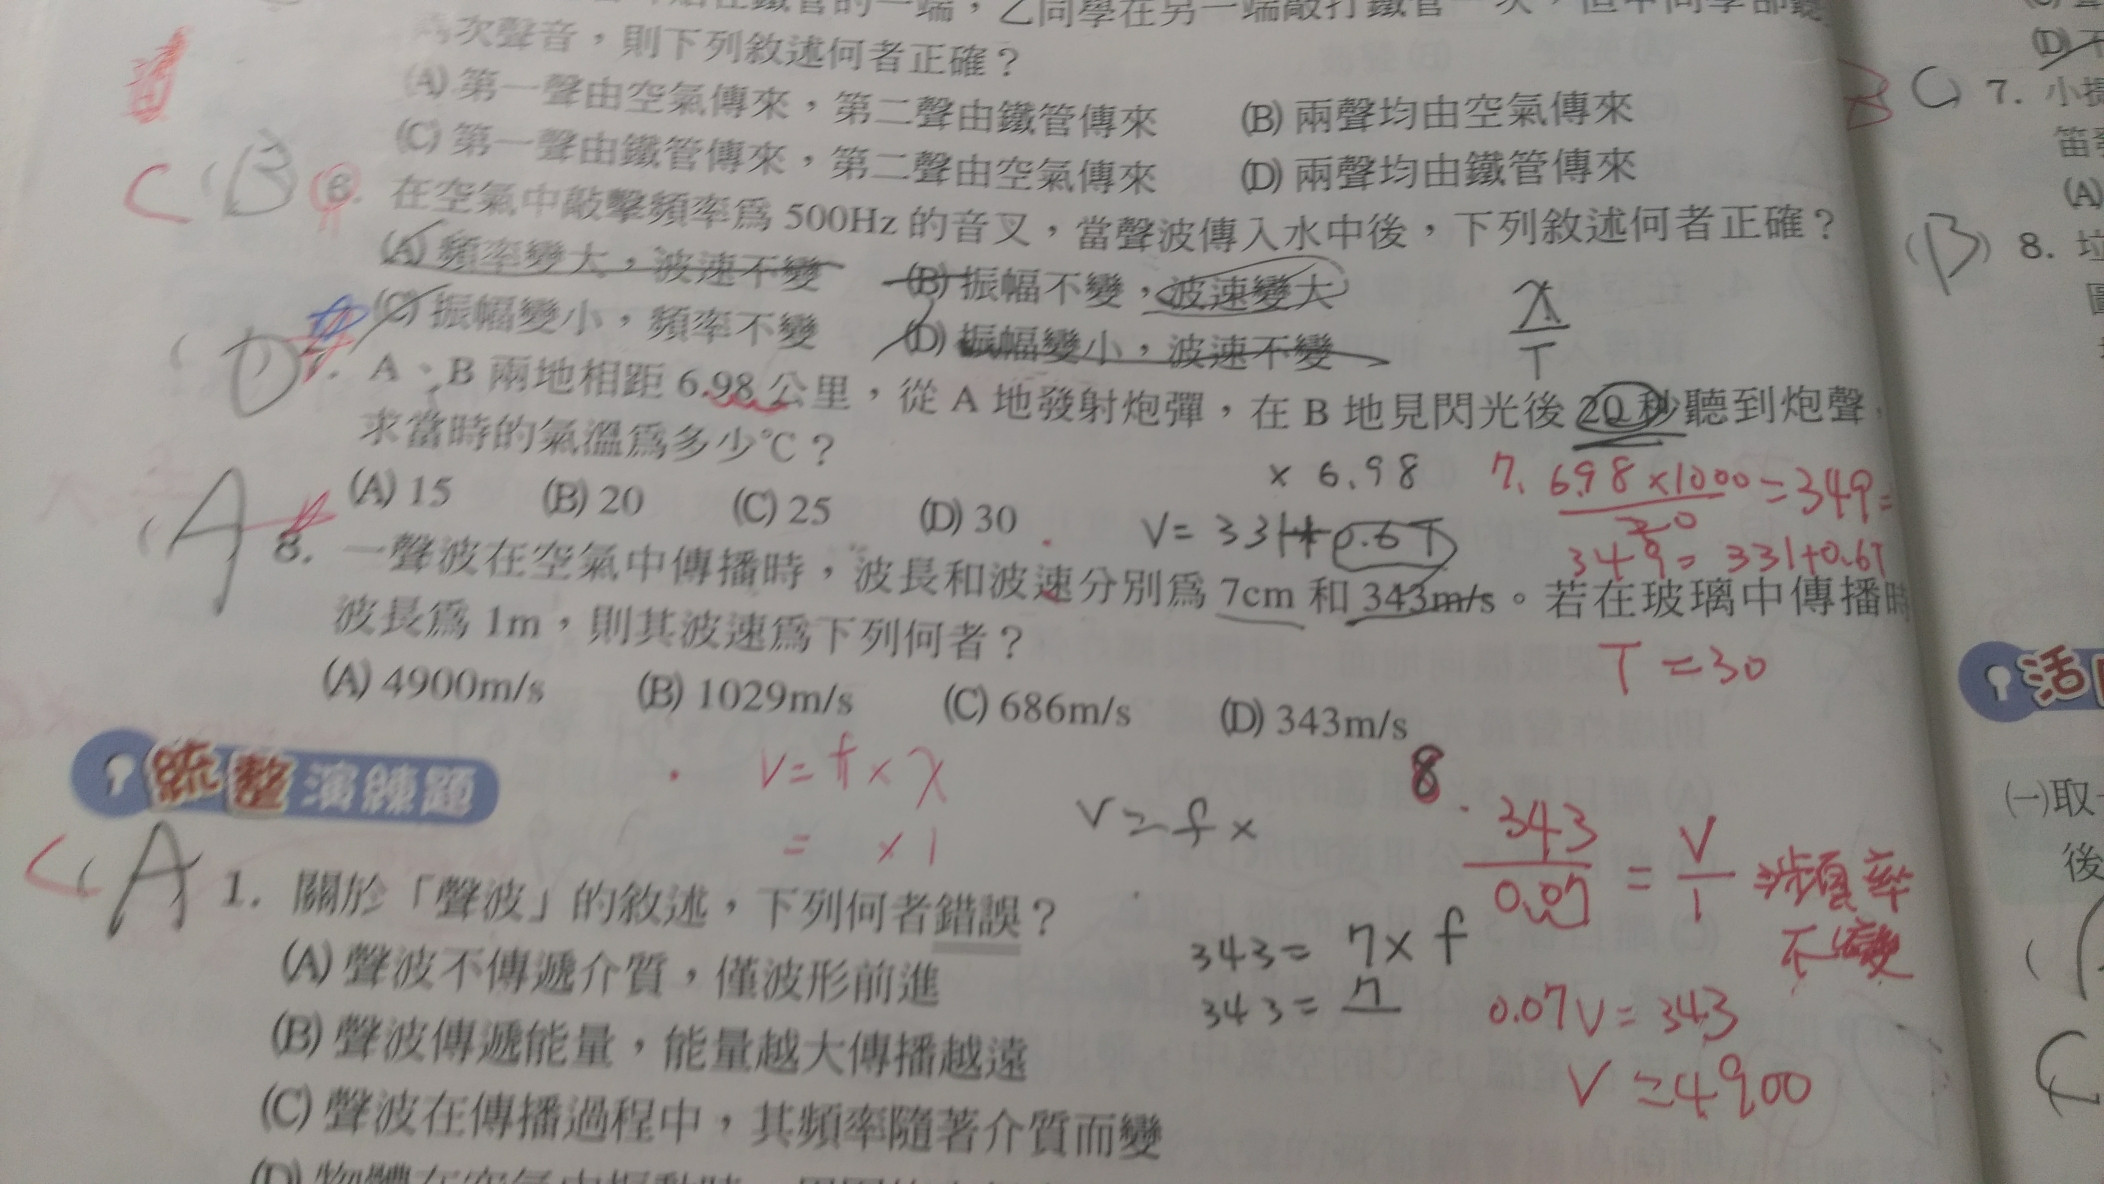 一端，乙同學在另一端敲打鐵管一次，但甲同學卻聽
次聲音，則下列敘述何者正確？
(A) 第一聲由空氣傳來，第二聲由鐵管傳來 (B) 兩聲均由空氣傳來
(C) 第一聲由鐵管傳來，第二聲由空氣傳來 (D) 兩聲均由鐵管傳來
C (B) 6. 在空氣中敲擊頻率為 500Hz 的音叉，當聲波傳入水中後，下列敘述何者正確？
(A) 頻率變大，波速不變 (B) 振幅不變，波速變大
(C) 振幅變小，頻率不變 (D) 振幅變小，波速不變
λ
T
(D) 7. A、B 兩地相距 6.98 公里，從 A 地發射炮彈，在 B 地見閃光後 20 秒聽到炮聲，
求當時的氣溫為多少℃？
(A) 15 (B) 20 (C) 25 (D) 30
× 6.98
V= 331+0.6T
7. 6.98×1000 = 349=
20
349= 331+0.6T
T=30
(A) 8. 一聲波在空氣中傳播時，波長和波速分別為 7cm 和 343m/s。若在玻璃中傳播時
波長為 1m，則其波速為下列何者？
(A) 4900m/s (B) 1029m/s (C) 686m/s (D) 343m/s
統整演練題
v=f×λ
= ×1
v=f×
343= 7×f
343= 7
8. 343 = V
0.07 1
頻率
不變
0.07V=343
V=4900
C (A 1. 關於「聲波」的敘述，下列何者錯誤？
(A) 聲波不傳遞介質，僅波形前進
(B) 聲波傳遞能量，能量越大傳播越遠
(C) 聲波在傳播過程中，其頻率隨著介質而變
(D)
C 7. 小
笛
(A)
(B) 8. 垃
圖
活
(一)取
後